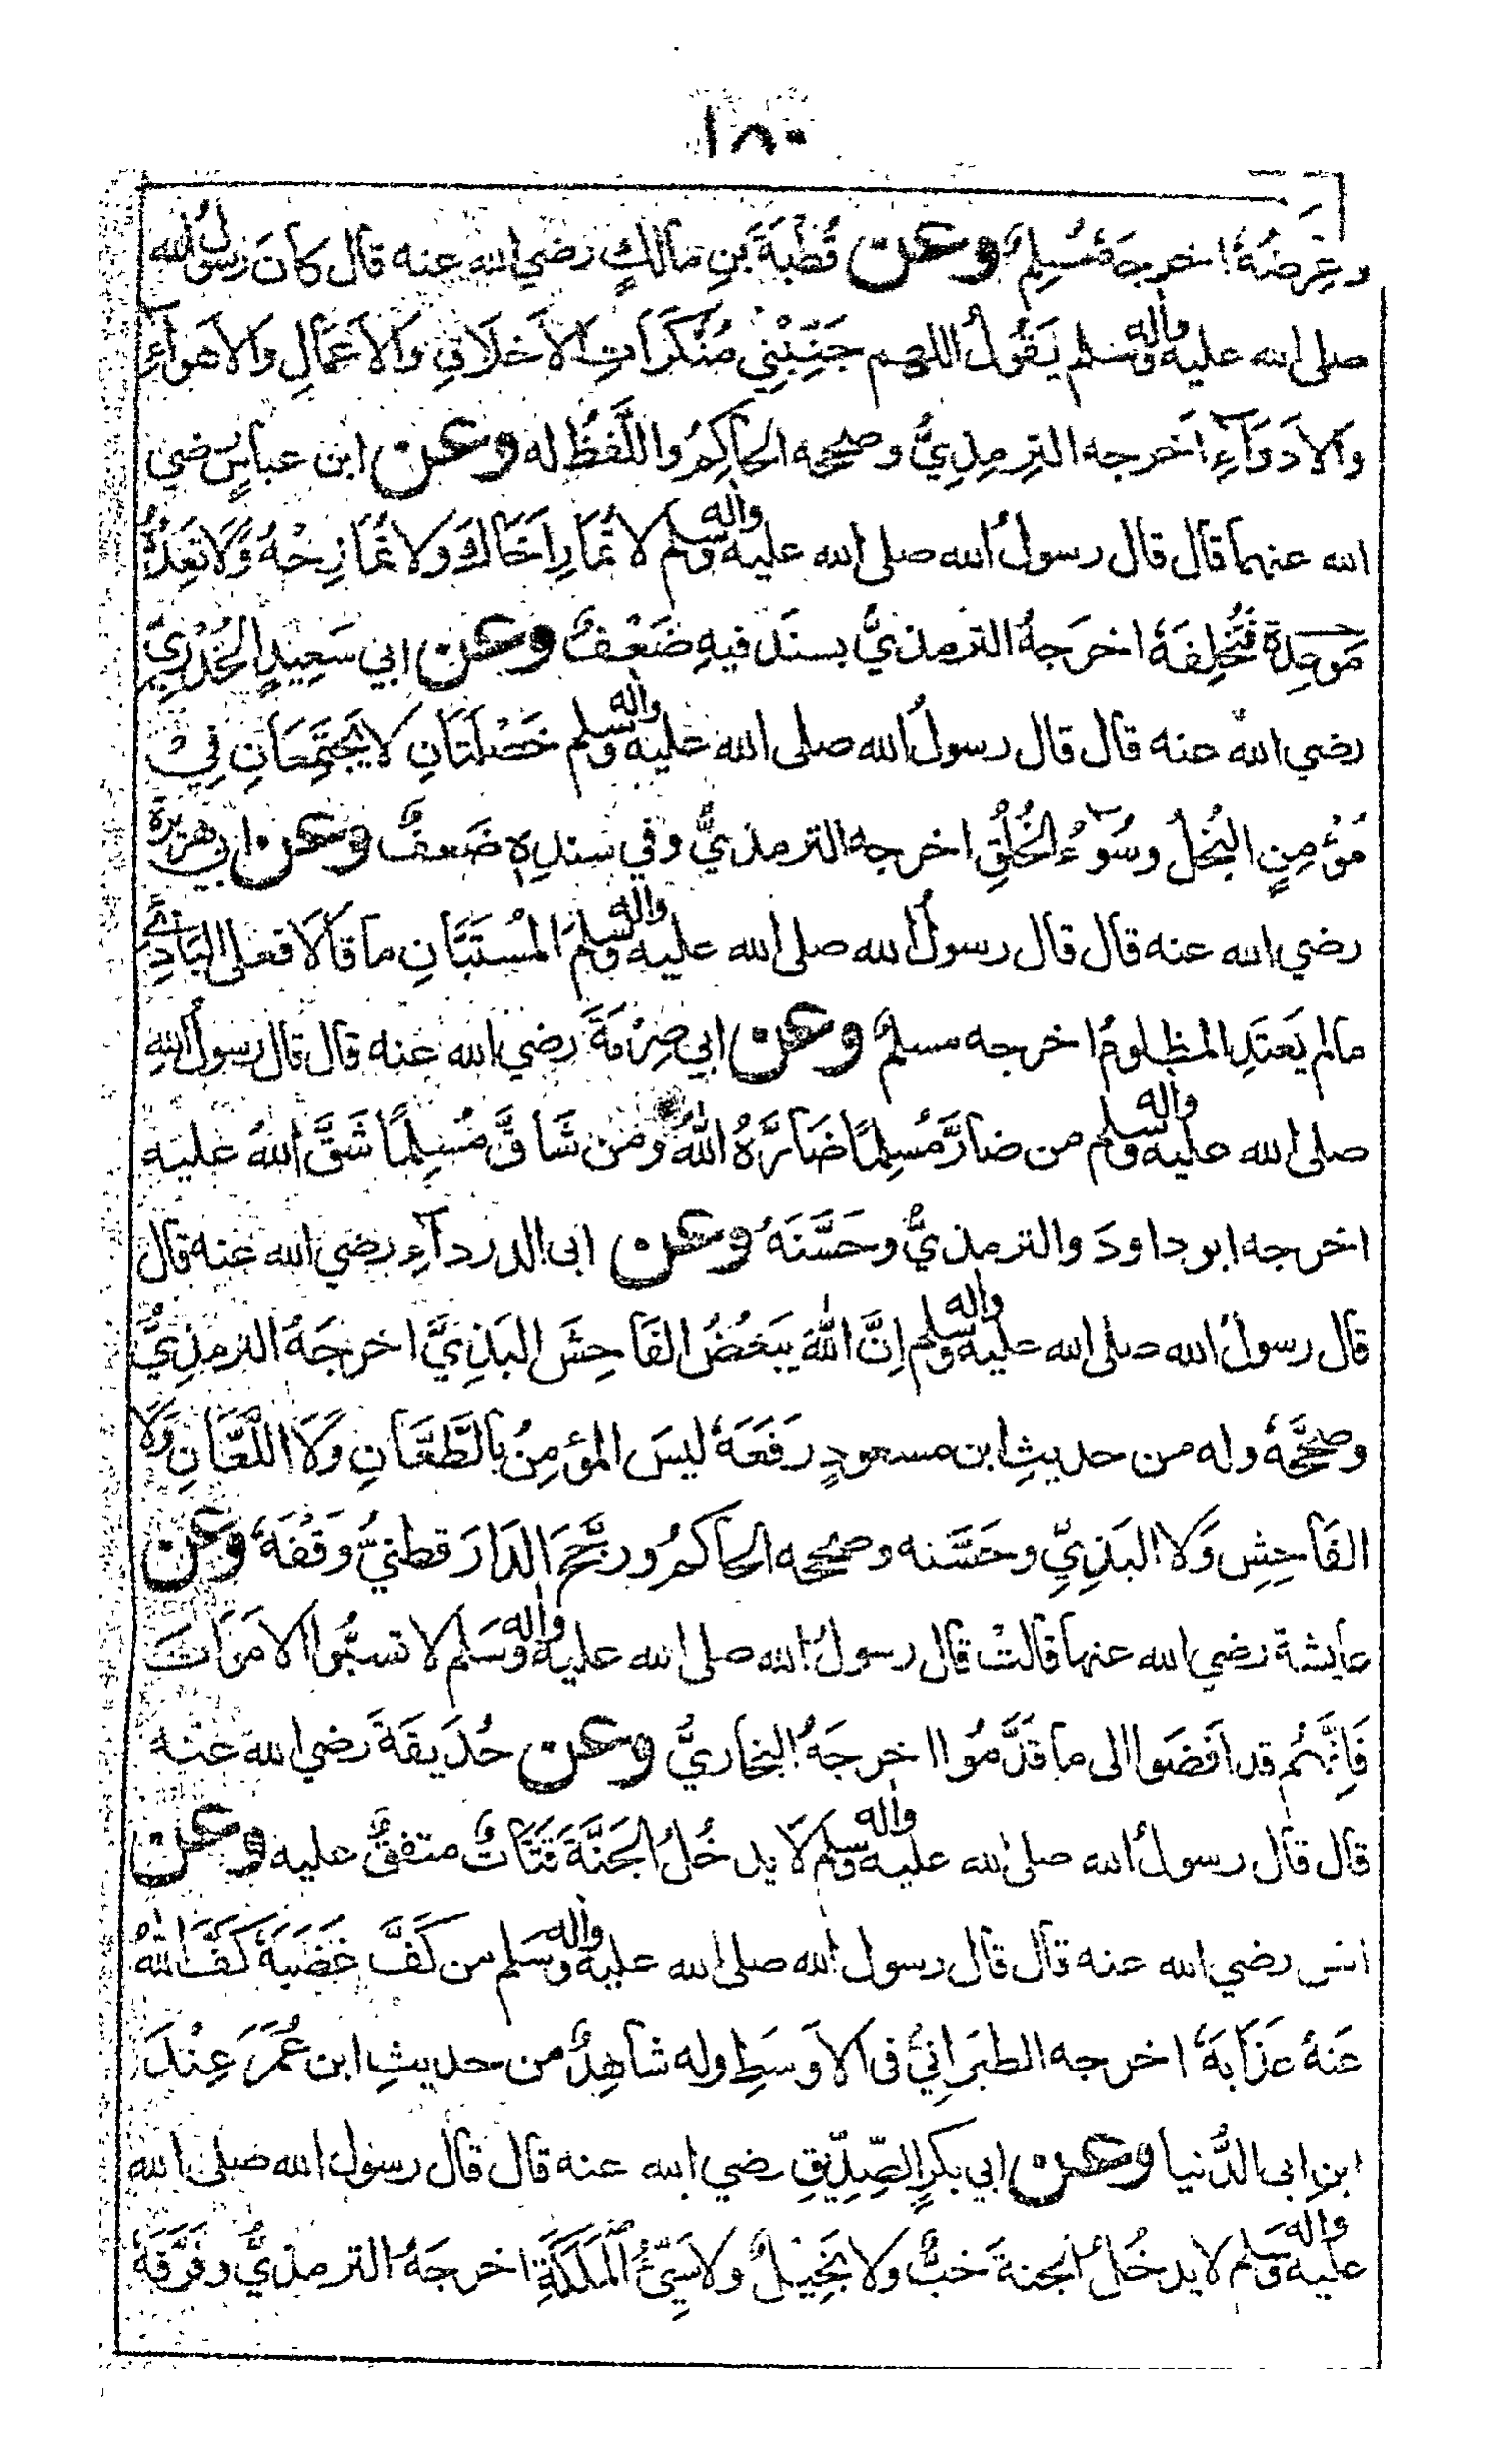 ١٨٠
وعِرضُهُ اخرجهُ مُسلِمٌ وعن قُطْبَةَ بنِ مالكٍ رضي الله عنه قال كانَ رسولُ الله
صلى الله عليه وآله وسلم يَقُولُ اللهم جَنِّبْنِي مُنْكَرَاتِ الاَخلَاقِ وَالاَعمَالِ وَالاَهوَآءِ
والاَدوَآءِ اَخرجه الترمِذِيُّ وصححه الحاكِمُ واللَّفظُ له وعن ابن عباسٍ رضي
الله عنهما قال قال رسولُ الله صلى الله عليه وآله وسلم لا تُمَارِ اَخَاكَ ولا تُمَازِحْهُ وَلَا تَعِدْهُ
مَوعِدة فَتُخْلِفَهُ اخرَجهُ الترمذيُّ بسندَ فيهِ ضَعْفٌ وعن ابي سَعِيدٍ الخُدْرِيِّ
رضي الله عنه قال قال رسولُ الله صلى الله عليه وآله وسلم خَصْلَتَانِ لا يَجتَمِعَانِ فِيْ
مُؤْمِنٍ البُخلُ وسُوءُ الخُلُقِ اخرجه الترمذيُّ وفي سندِهٖ ضَعفٌ وعن ابي هريرة
رضي الله عنه قال قال رسولُ الله صلى الله عليه وآله وسلم المُستَبَّانِ ما قَالَا فعلى البَادِئِ
مالم يَعتَدِ المظلومُ اخرجه مسلمٌ وعن ابي صِرْمَةَ رضي الله عنه قال قال رسولُ اللهِ
صلى الله عليه وآله وسلم من ضارَّ مُسلِمًا ضَارَّهُ اللهُ ومَن شَاقَّ مُسلِمًا شَقَّ اللهُ عليه
اخرجه ابو داودَ والترمذيُّ وحَسَّنَهُ وعن ابى الدرداءِ رضي الله عنه قال
قال رسولُ الله صلى الله عليه وآله وسلم اِنَّ اللهَ يبغضُ الفَاحِشَ البَذِيَّ اخرجَهُ الترمذِيُّ
وصححَّهُ وله من حديثِ ابن مسعودٍ رَفَعَهُ ليسَ المؤمِنُ بالطَّعَّانِ وَلَا اللَّعَّانِ وَلَا
الفَاحِشِ وَلا البَذِيِّ وحَسَّنه وصححه الحاكمُ ورجَّحَ الدَارَقطنيُّ وَقْفَهُ وعن
عايشة رضي الله عنها قالتْ قال رسولُ الله صلى الله عليه وآله وسَلم لا تسبُّوا الامَوَاتَ
فَاِنَّهُم قد اَفضَوا الى ما قَدَّمُوا اخرجَهُ البخاريُّ وعن حُذَيفَةَ رضي الله عنه
قال قال رسولُ الله صلى الله عليه وآله وسلم لَا يدخُلُ الجَنَّةَ قَتَّاتٌ متفقٌ عليه وعن
انس رضي الله عنه قال قال رسول الله صلى الله عليه وآله وسَلم من كَفَّ غَضَبَهُ كَفَّ اللهُ
عَنهُ عَذَابَهُ اخرجه الطبَرَانِيُّ فى الاَوسَطِ وله شاهِدٌ من حديثِ ابن عُمَرَ عِنْدَ
ابنِ ابى الدُّنيا وعن ابي بكرٍ الصِّدِّيقِ رضي الله عنه قال قال رسول الله صلى الله
عليه وآله وسلم لا يدخُلُ الجنةَ خبٌّ ولا بَخِيلٌ ولا سَيِّئُ المَلَكَةِ اخرجهُ الترمذيُّ وفَرَّقَهُ